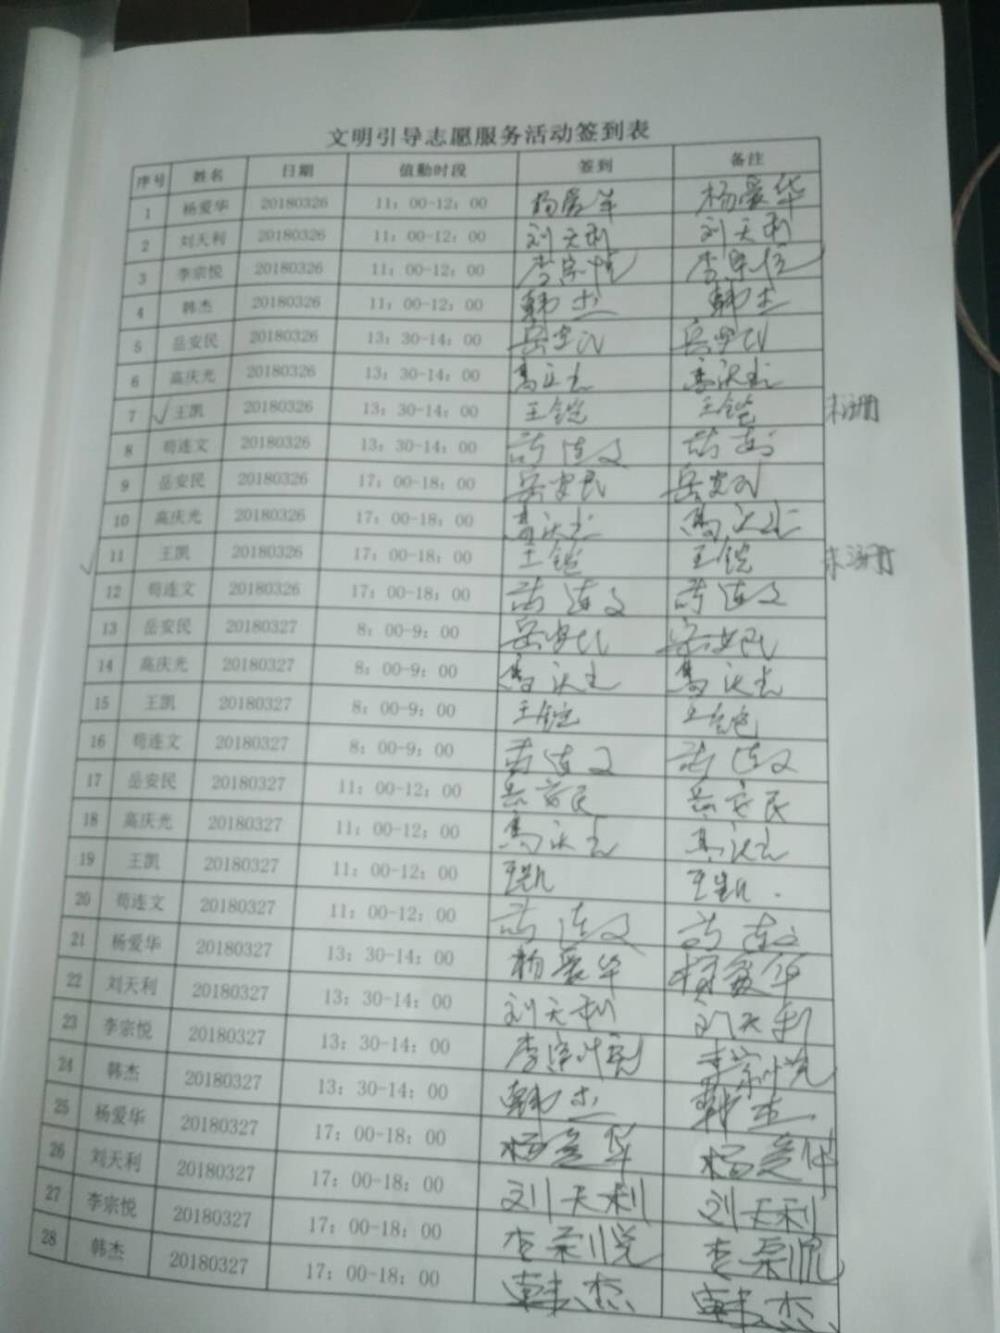 文明引导志愿服务活动签到表
序号 姓名 日期 值勤时段 签到 备注
1 杨爱华 20180326 11：00-12：00 杨爱华 杨爱华
2 刘天利 20180326 11：00-12：00 刘天利 刘天利
3 李宗悦 20180326 11：00-12：00 李宗悦 李宗悦
4 韩杰 20180326 11：00-12：00 韩杰 韩杰
5 岳安民 20180326 13：30-14：00 岳安民 岳安民
6 高庆光 20180326 13：30-14：00 高庆光 高庆光
7 王凯 20180326 13：30-14：00 王铠 王铠
8 荀连文 20180326 13：30-14：00 荀连文 荀连文
9 岳安民 20180326 17：00-18：00 岳安民 岳安民
10 高庆光 20180326 17：00-18：00 高庆光 高庆光
11 王凯 20180326 17：00-18：00 王铠 王铠
12 荀连文 20180326 17：00-18：00 荀连文 荀连文
13 岳安民 20180327 8：00-9：00 岳安民 岳安民
14 高庆光 20180327 8：00-9：00 高庆光 高庆光
15 王凯 20180327 8：00-9：00 王铠 王铠
16 荀连文 20180327 8：00-9：00 荀连文 荀连文
17 岳安民 20180327 11：00-12：00 岳安民 岳安民
18 高庆光 20180327 11：00-12：00 高庆光 高庆光
19 王凯 20180327 11：00-12：00 王凯 王凯
20 荀连文 20180327 11：00-12：00 荀连文 荀连文
21 杨爱华 20180327 13：30-14：00 杨爱华 杨爱华
22 刘天利 20180327 13：30-14：00 刘天利 刘天利
23 李宗悦 20180327 13：30-14：00 李宗悦 李宗悦
24 韩杰 20180327 13：30-14：00 韩杰 韩杰
25 杨爱华 20180327 17：00-18：00 杨爱华 杨爱华
26 刘天利 20180327 17：00-18：00 刘天利 刘天利
27 李宗悦 20180327 17：00-18：00 李宗悦 李宗悦
28 韩杰 20180327 17：00-18：00 韩杰 韩杰